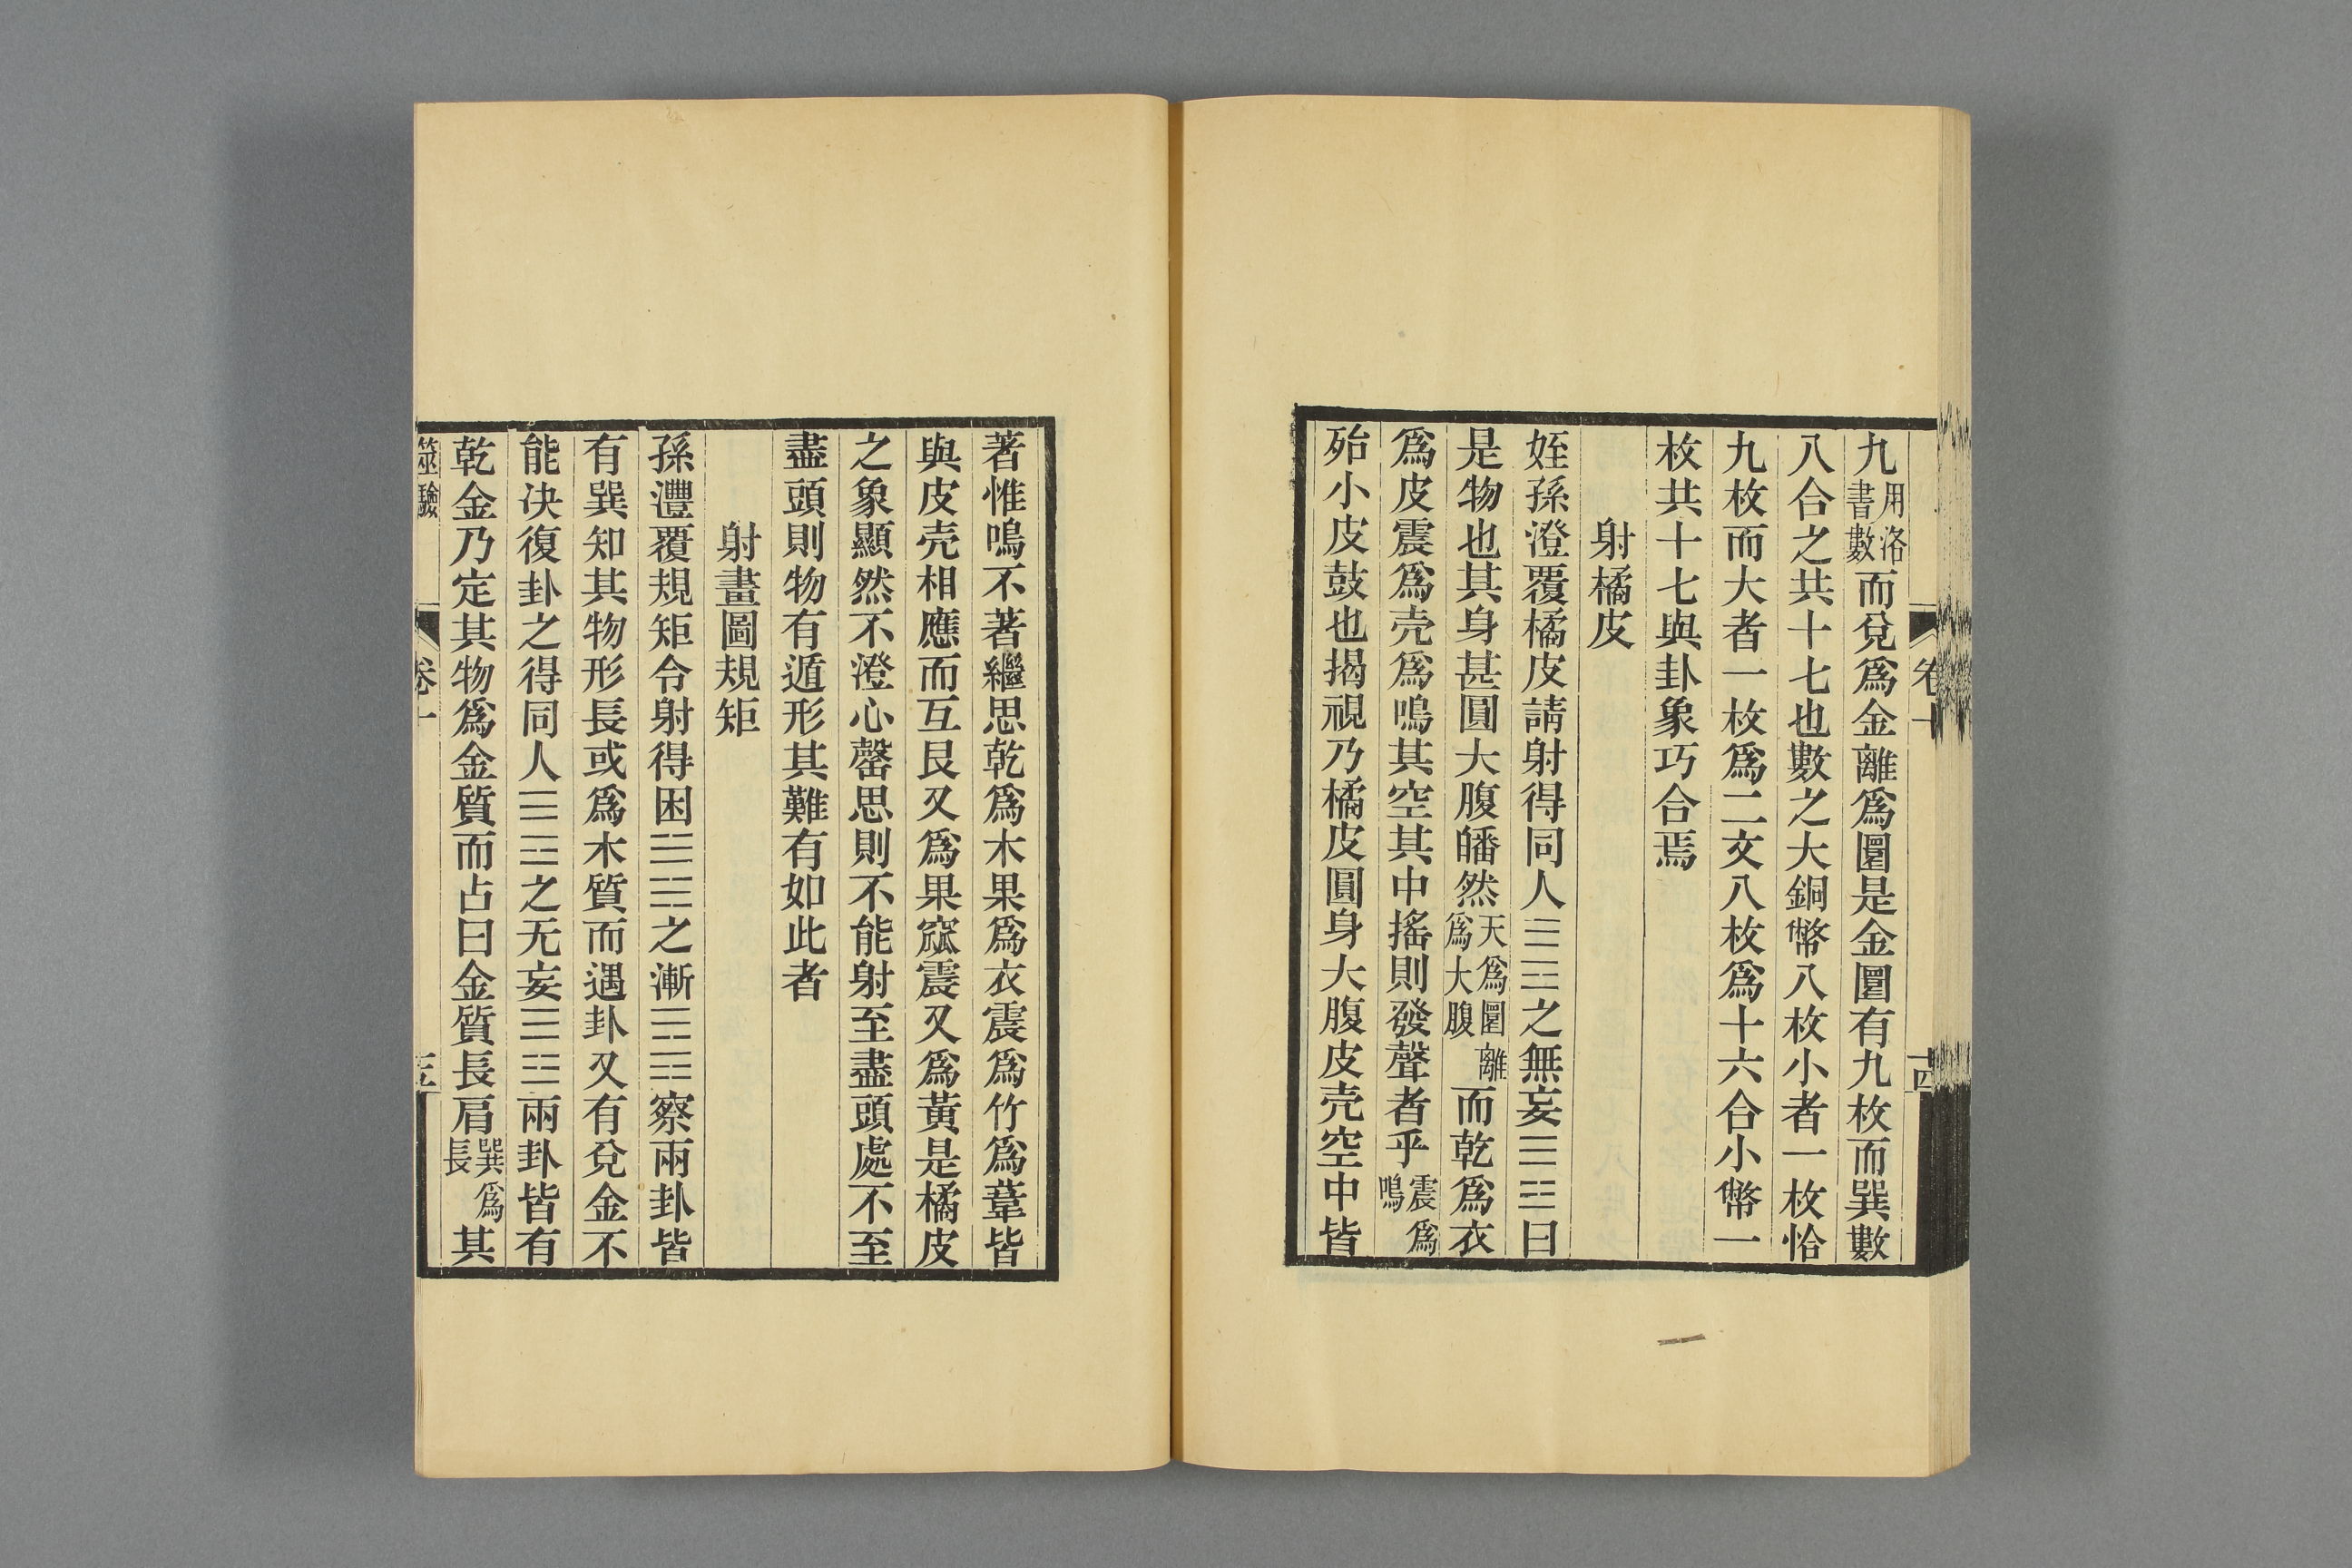 卷十
十四
九用洛書數而兌爲金離爲圜是金圜有九枚而巽數
八合之共十七也數之大銅幣八枚小者一枚恰
九枚而大者一枚爲二文八枚爲十六合小幣一
枚共十七與卦象巧合焉
射橘皮
姪孫澄覆橘皮請射得同人☰☲之無妄☰☳曰
是物也其身甚圓大腹皤然天爲圜離爲大腹而乾爲衣
爲皮震爲壳爲鳴其空其中搖則發聲者乎震爲鳴
殆小皮鼓也揭視乃橘皮圓身大腹皮壳空中皆
著惟鳴不著繼思乾爲木果爲衣震爲竹爲葦皆
與皮壳相應而互艮又爲果窳震又爲黃是橘皮
之象顯然不澄心罄思則不能射至盡頭處不至
盡頭則物有遁形其難有如此者
射畫圖規矩
孫灃覆規矩令射得困☱☵之漸☴☶察兩卦皆
有巽知其物形長或爲木質而遇卦又有兌金不
能決復卦之得同人☰☲之无妄☰☳兩卦皆有
乾金乃定其物爲金質而占曰金質長肩巽爲長其
筮驗
卷十
十五